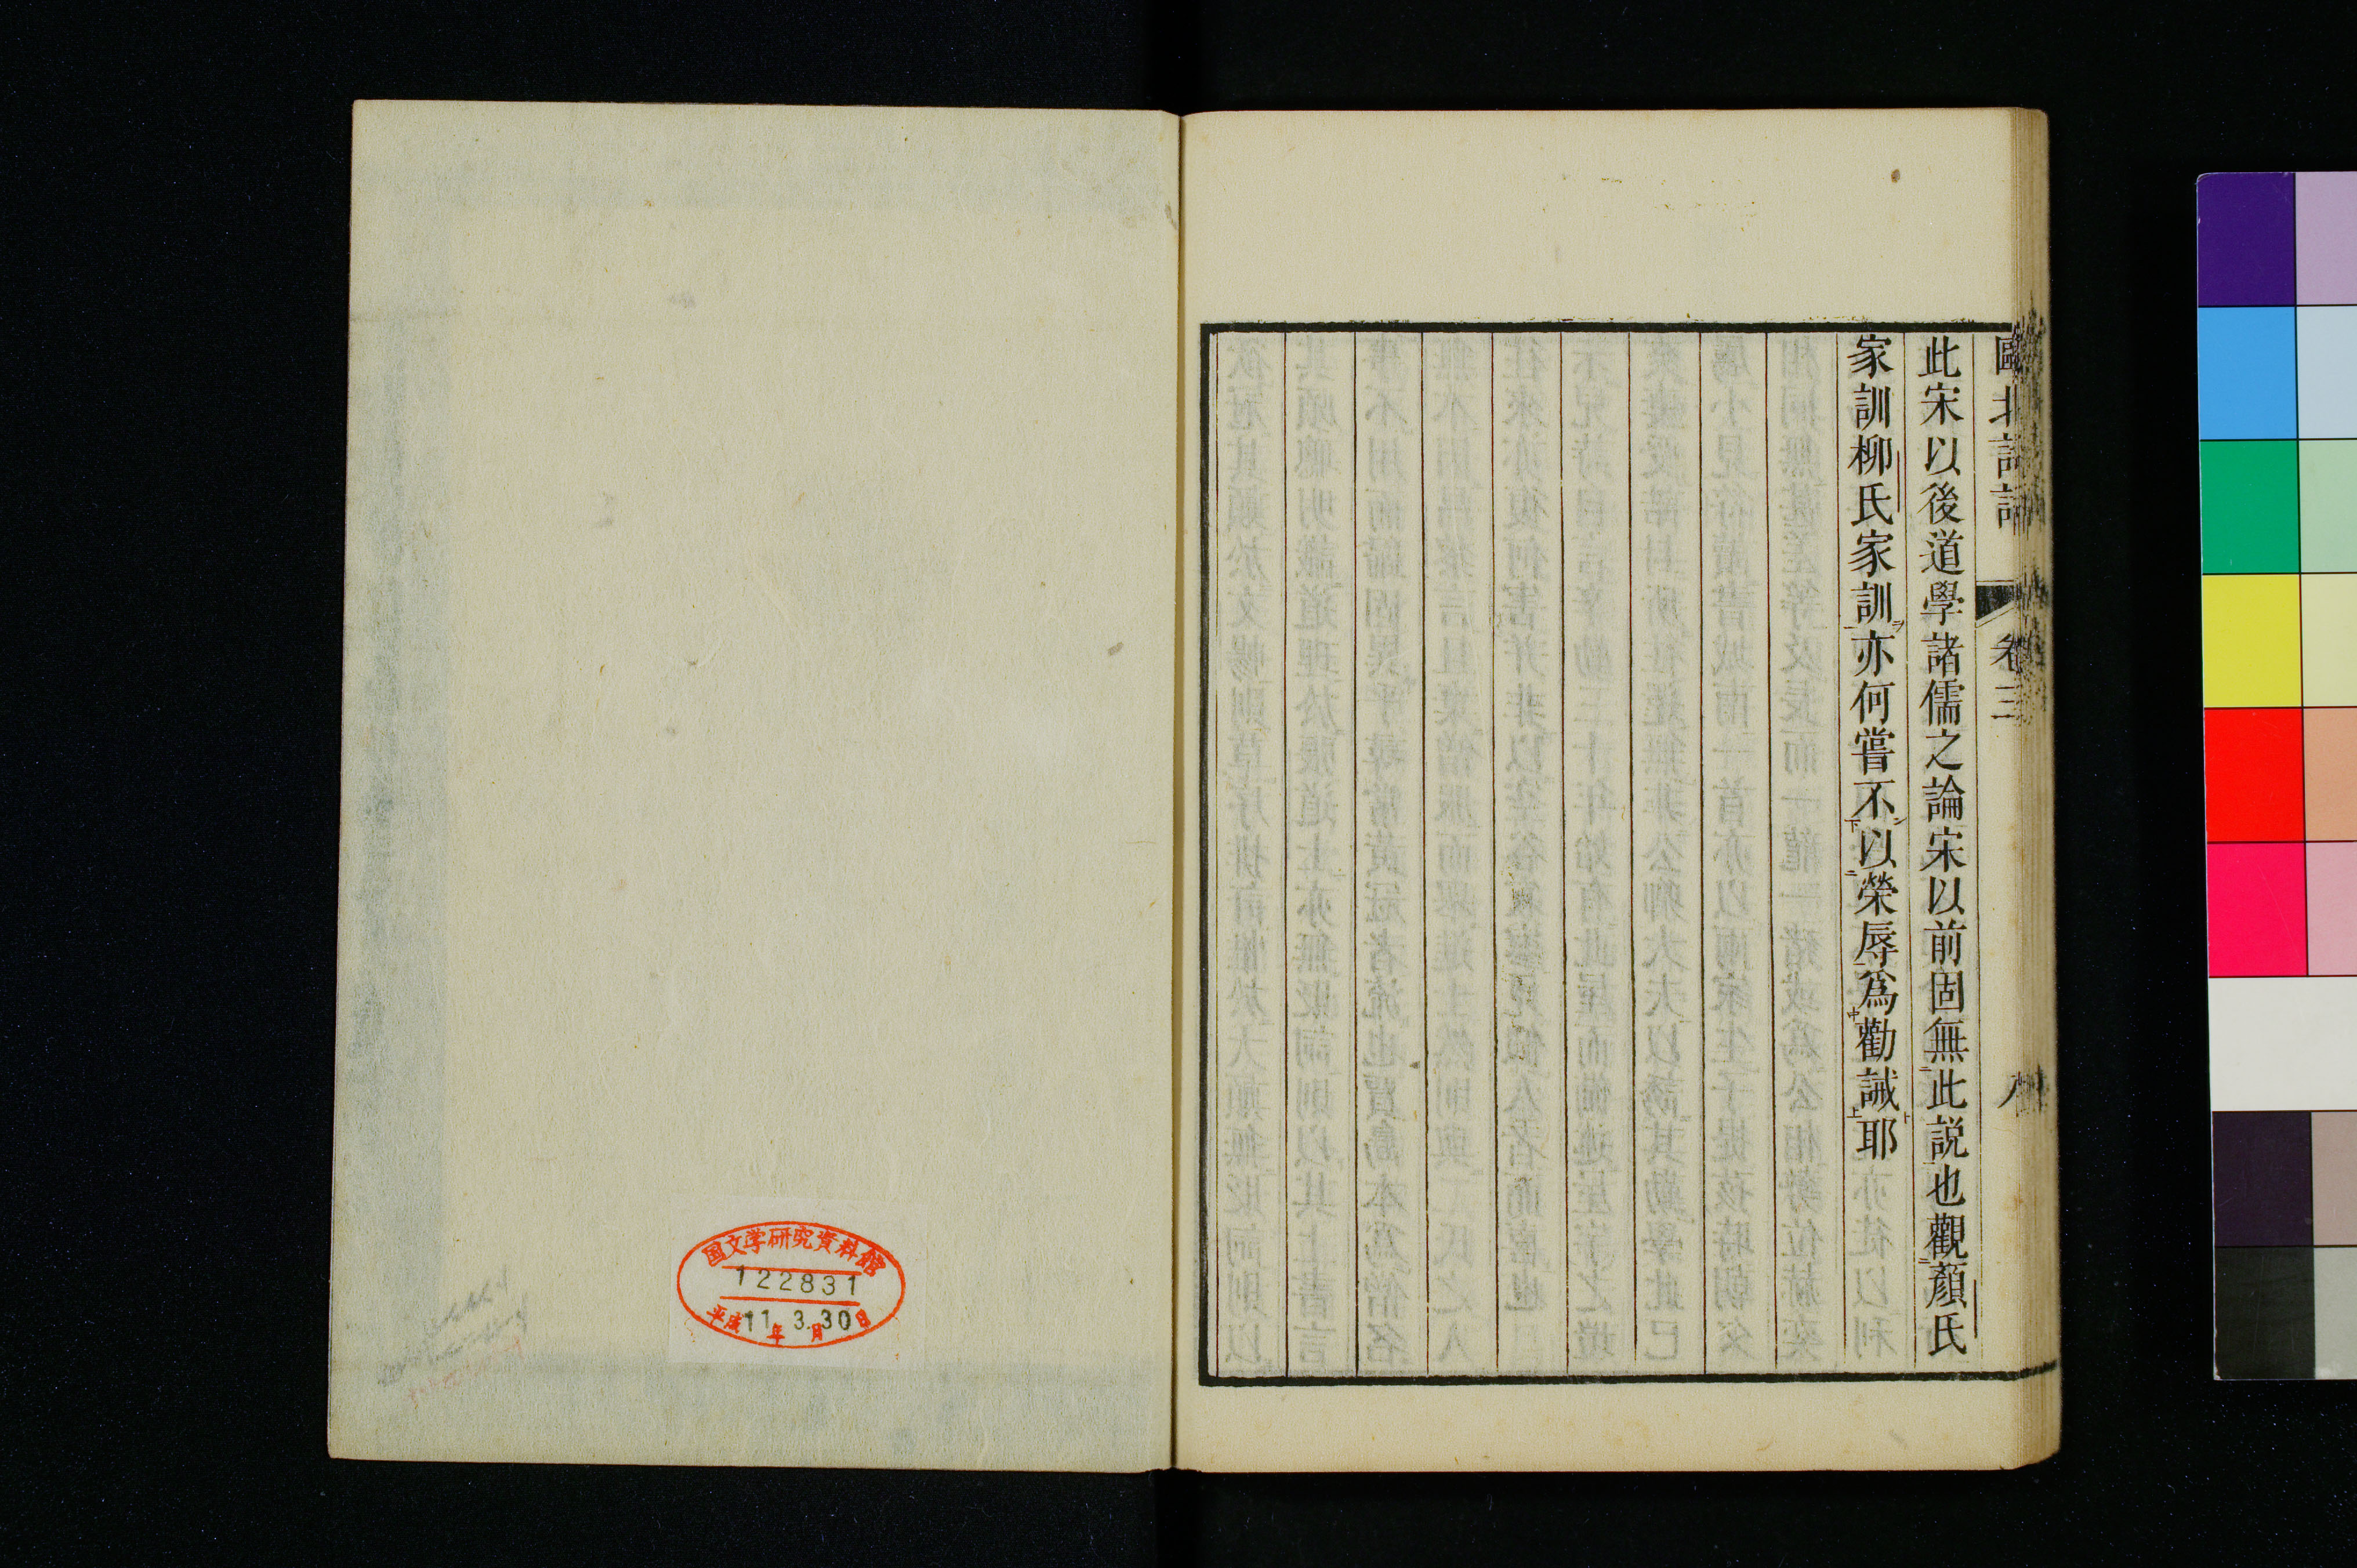 甌北詩話 卷三 八
此宋以後道學諸儒之論宋以前固無此説也觀顏氏
家訓柳氏家訓亦何嘗不以榮辱爲勸誡耶
国文学研究資料館
122831
平成11年3月30日